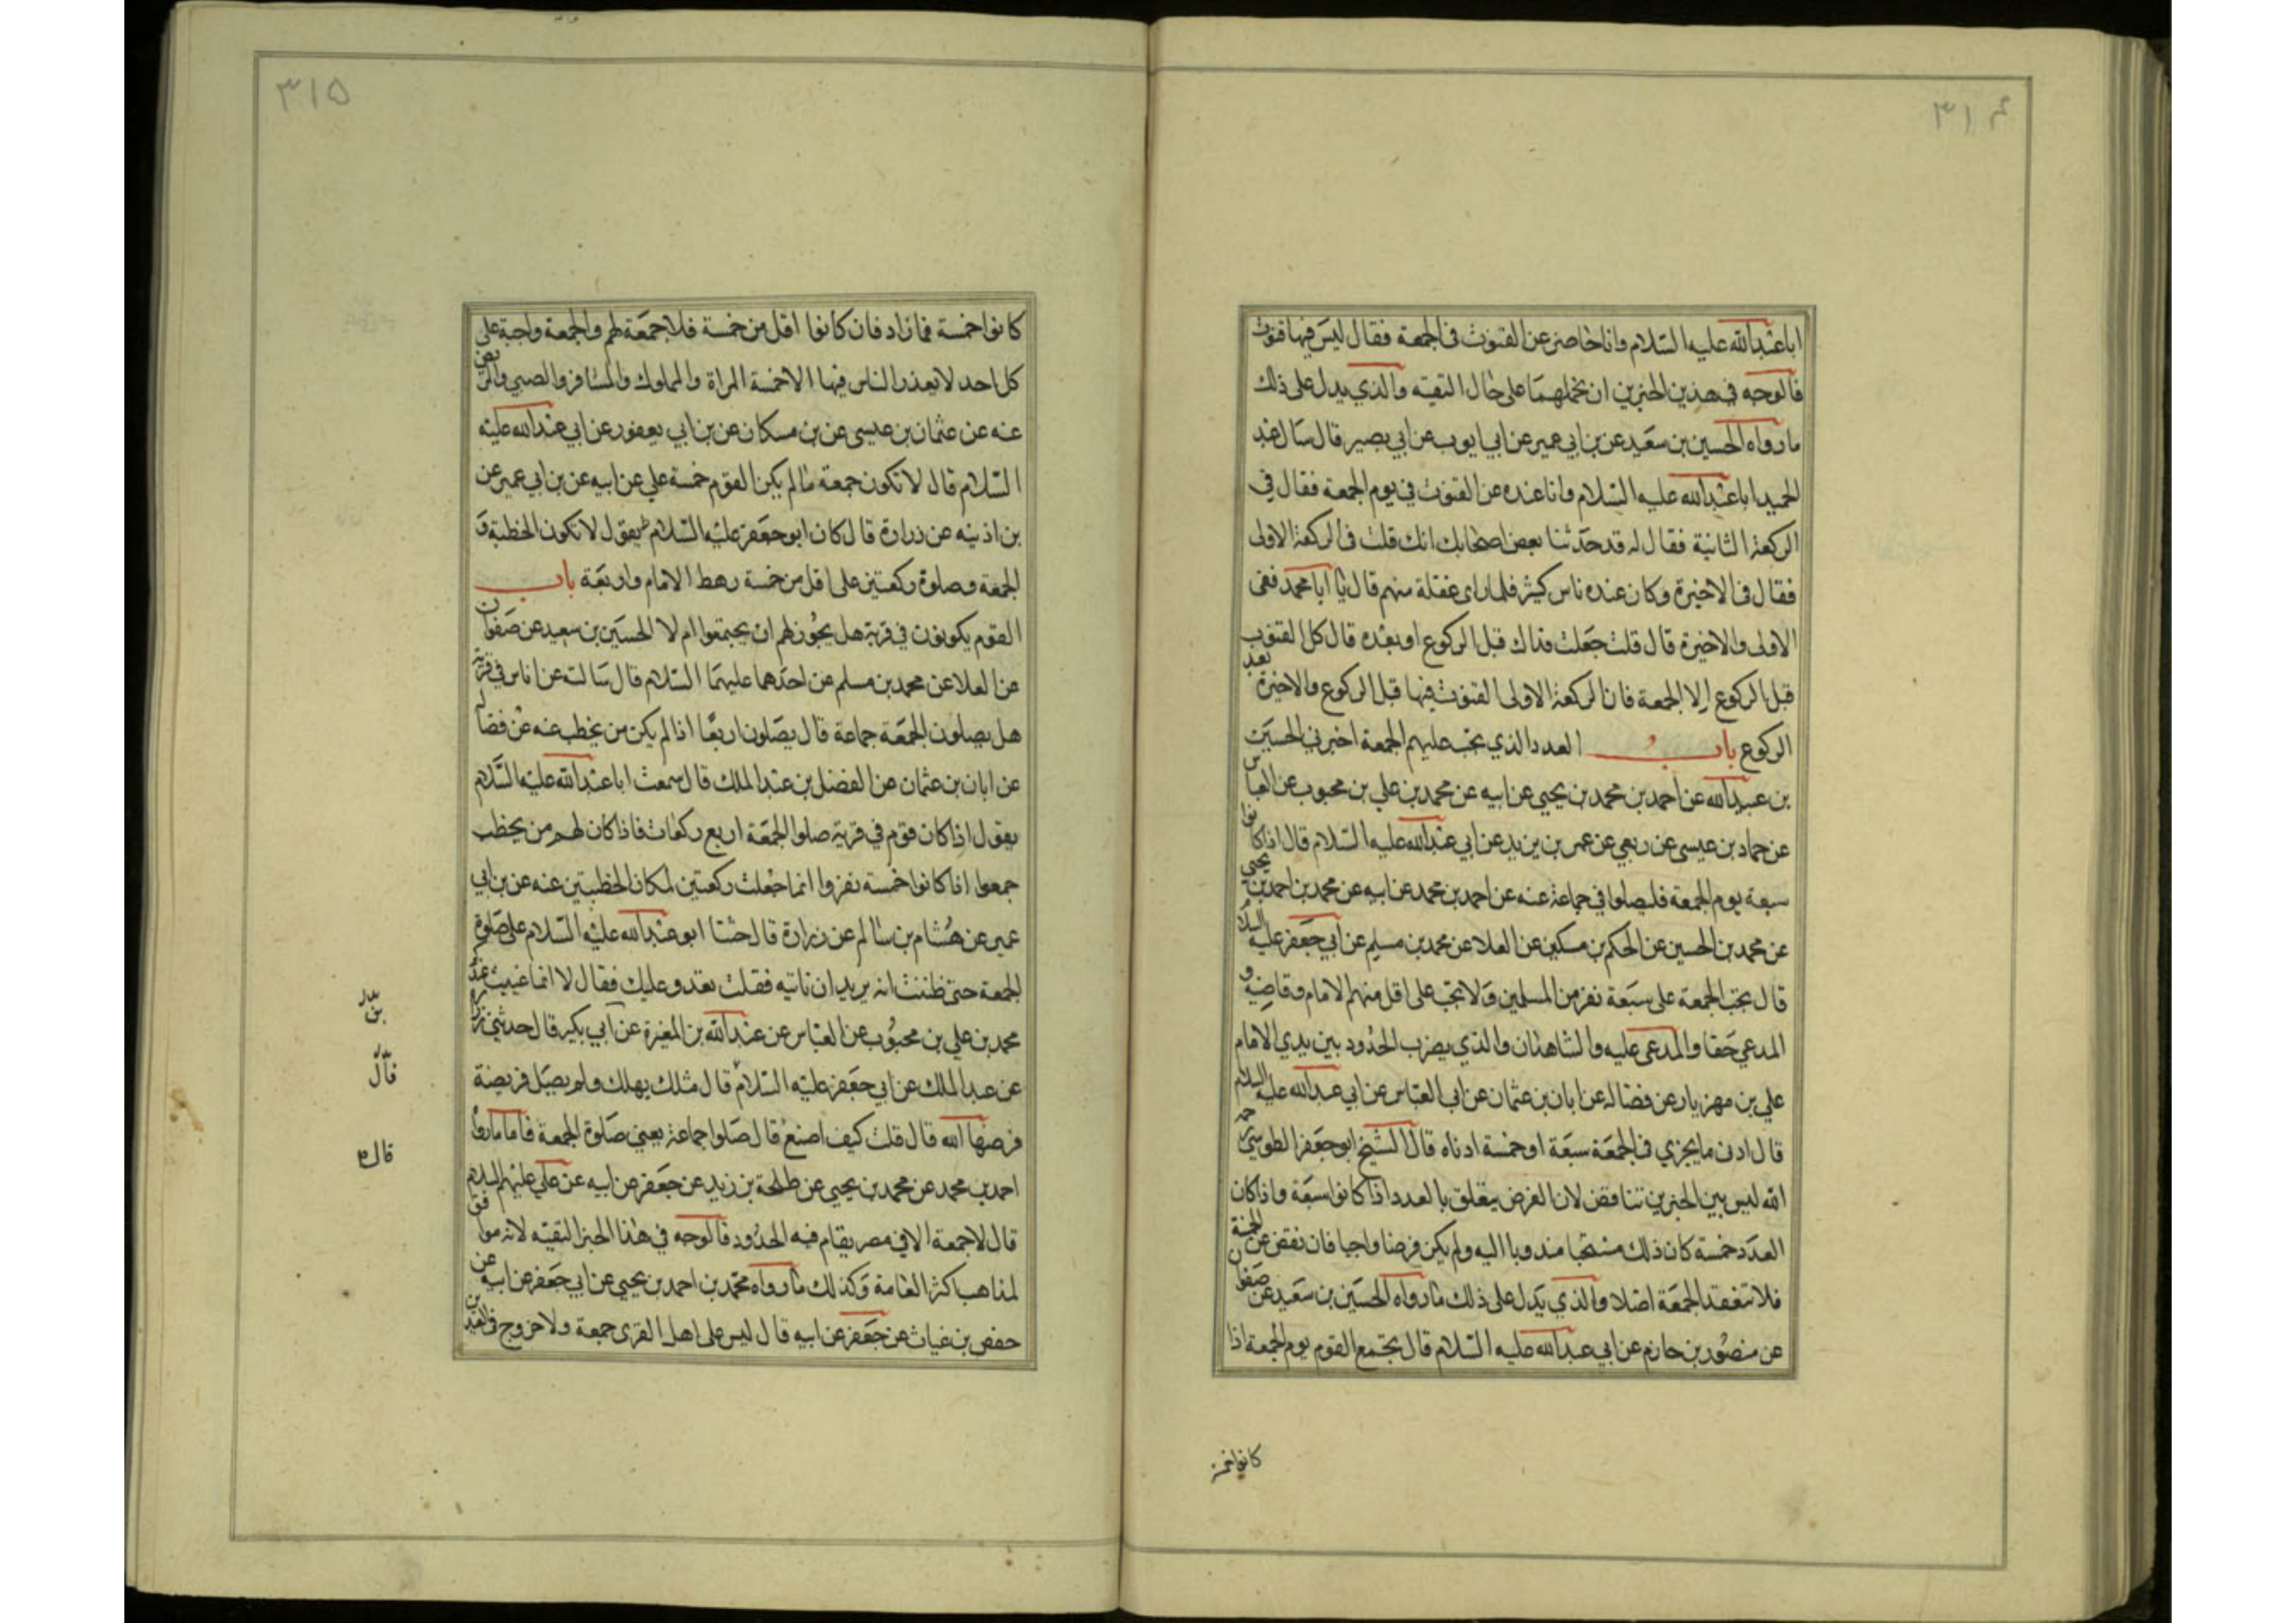 ٣١٤
ابا عبد الله عليه السلام وانا حاضر عن القنوت في الجمعة فقال ليس فيها قنوت
فالوجه في هذين الخبرين ان نحملهما على حال التقيه والذي يدل على ذلك
ما رواه الحسين بن سعيد عن بن ابي عمير عن ابي ايوب عن ابي بصير قال سال عبد
الحميد ابا عبد الله عليه السلام وانا عنده عن القنوت في يوم الجمعة فقال في
الركعة الثانية فقال له قد حدثنا بعض اصحابك انك قلت في الركعة الاولى
فقال في الاخيرة وكان عنده ناس كثير فلما راى غفلة منهم قال يا ابا محمد ففي
الاولى والاخيرة قال قلت جعلت فداك قبل الركوع او بعده قال كل القنوت
قبل الركوع الا الجمعة فان الركعة الاولى القنوت فيها قبل الركوع والاخيرة بعد
الركوع باب العدد الذي تجب عليهم الجمعة اخبرني الحسين
بن عبيد الله عن احمد بن محمد بن يحيي عن ابيه عن محمد بن علي بن محبوب عن العباس
عن حماد بن عيسى عن ربعي عن عمر بن يزيد عن ابي عبد الله عليه السلام قال اذا كانوا
سبعة يوم الجمعة فليصلوا في جماعة عنه عن احمد بن محمد عن ابيه عن محمد بن احمد بن يحيي
عن محمد بن الحسين عن الحكم بن مسكين عن العلا عن محمد بن مسلم عن ابي جعفر عليه السلام
قال تجب الجمعة على سبعة نفر من المسلمين ولا تجب على اقل منهم الامام وقاضيه و
المدعي حقا والمدعى عليه والشاهدان والذي يضرب الحدود بين يدي الامام
علي بن مهزيار عن فضاله عن ابان بن عثمان عن ابي العباس عن ابي عبد الله عليه السلام
قال ادنى ما يجزي في الجمعة سبعة او خمسة ادناه قال الشيخ ابو جعفر الطوسي رحمه
الله ليس بين الخبرين تناقض لان الفرض يتعلق بالعدد اذا كانوا سبعة واذا كان
العدد خمسة كان ذلك مستحبا مندوبا اليه ولم يكن فرضا واجبا فان نقص عن الخمسة
فلا تنعقد الجمعة اصلا والذي يدل على ذلك ما رواه الحسين بن سعيد عن صفوان
عن منصور بن حازم عن ابي عبد الله عليه السلام قال يجتمع القوم يوم الجمعة اذا
كانوا خمسة
٣١٥
كانوا خمسة فما زاد فان كانوا اقل من خمسة فلا جمعة لهم والجمعة واجبة على
كل احد لا يعذر الناس فيها الا خمسة المراة والمملوك والمسافر والصبي والمريض
عنه عن عثمان بن عيسى عن بن مسكان عن بن ابي يعفور عن ابي عبد الله عليه
السلام قال لا تكون جمعة ما لم يكن القوم خمسة علي عن ابيه عن بن ابي عمير عن
بن اذينه عن زرارة قال كان ابو جعفر عليه السلام يقول لا تكون الخطبة و
الجمعة وصلوة ركعتين على اقل من خمسة رهط الامام واربعة باب
القوم يكونون في قرية هل يجوز لهم ان يجتمعوا ام لا الحسين بن سعيد عن صفوان
عن العلا عن محمد بن مسلم عن احدهما عليهما السلام قال سالته عن اناس في قرية
هل يصلون الجمعة جماعة قال يصلون اربعا اذا لم يكن من يخطب عنه عن فضاله
عن ابان بن عثمان عن الفضل بن عبد الملك قال سمعت ابا عبد الله عليه السلام
يقول اذا كان قوم في قرية صلوا الجمعة اربع ركعات فاذا كان لهم من يخطب
جمعوا اذا كانوا خمسة نفر وانما جعلت ركعتين لمكان الخطبتين عنه عن بن ابي
عمير عن هشام بن سالم عن زرارة قال حثنا ابو عبد الله عليه السلام على صلوة
الجمعة حتى ظننت انه يريد ان ناتيه فقلت نغدو عليك فقال لا انما عنيت عندكم
محمد بن علي بن محبوب عن العباس عن عبد الله بن المغيرة عن ابي بكير قال حدثني زرارة
بن
عن عبد الملك عن ابي جعفر عليه السلام قال مثلك يهلك ولم يصل فريضة
قال
فرضها الله قال قلت كيف اصنع قال صلوا جماعة يعني صلوة الجمعة فاما ما رواه
قال
احمد بن محمد عن محمد بن يحيي عن طلحة بن زيد عن جعفر عن ابيه عن علي عليهم السلام
قال لا جمعة الا في مصر يقام فيه الحدود فالوجه في هذا الخبر التقيه لانه موافق
لمذاهب اكثر العامة وكذلك ما رواه محمد بن احمد بن يحيي عن ابي جعفر عن ابيه عن
حفص بن غياث عن جعفر عن ابيه قال ليس على اهل القرى جمعة ولا خروج في العيدين